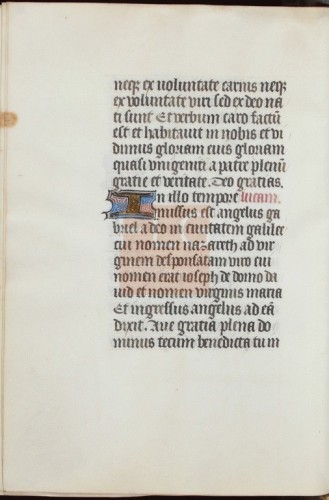 neq₃ ex voluntate carnis neq₃
ex voluntate viri sed ex deo na
ti sunt Et verbum caro factū
est et habitavit in nobis et vi
dimus gloriam eius gloriam
quasi unigeniti a patre plenū
gratie et veritate. Deo gratias.
In illo tempore lucam.
missus est angelus ga
briel a deo in civitatem galilee
cui nomen nazareth ad vir
ginem desponsatam viro cui
nomen erat ioseph de domo da
uid et nomen virginis maria
Et ingressus angelus ad eā
dixit. Ave gratia plena do
minus tecum benedicta tu in